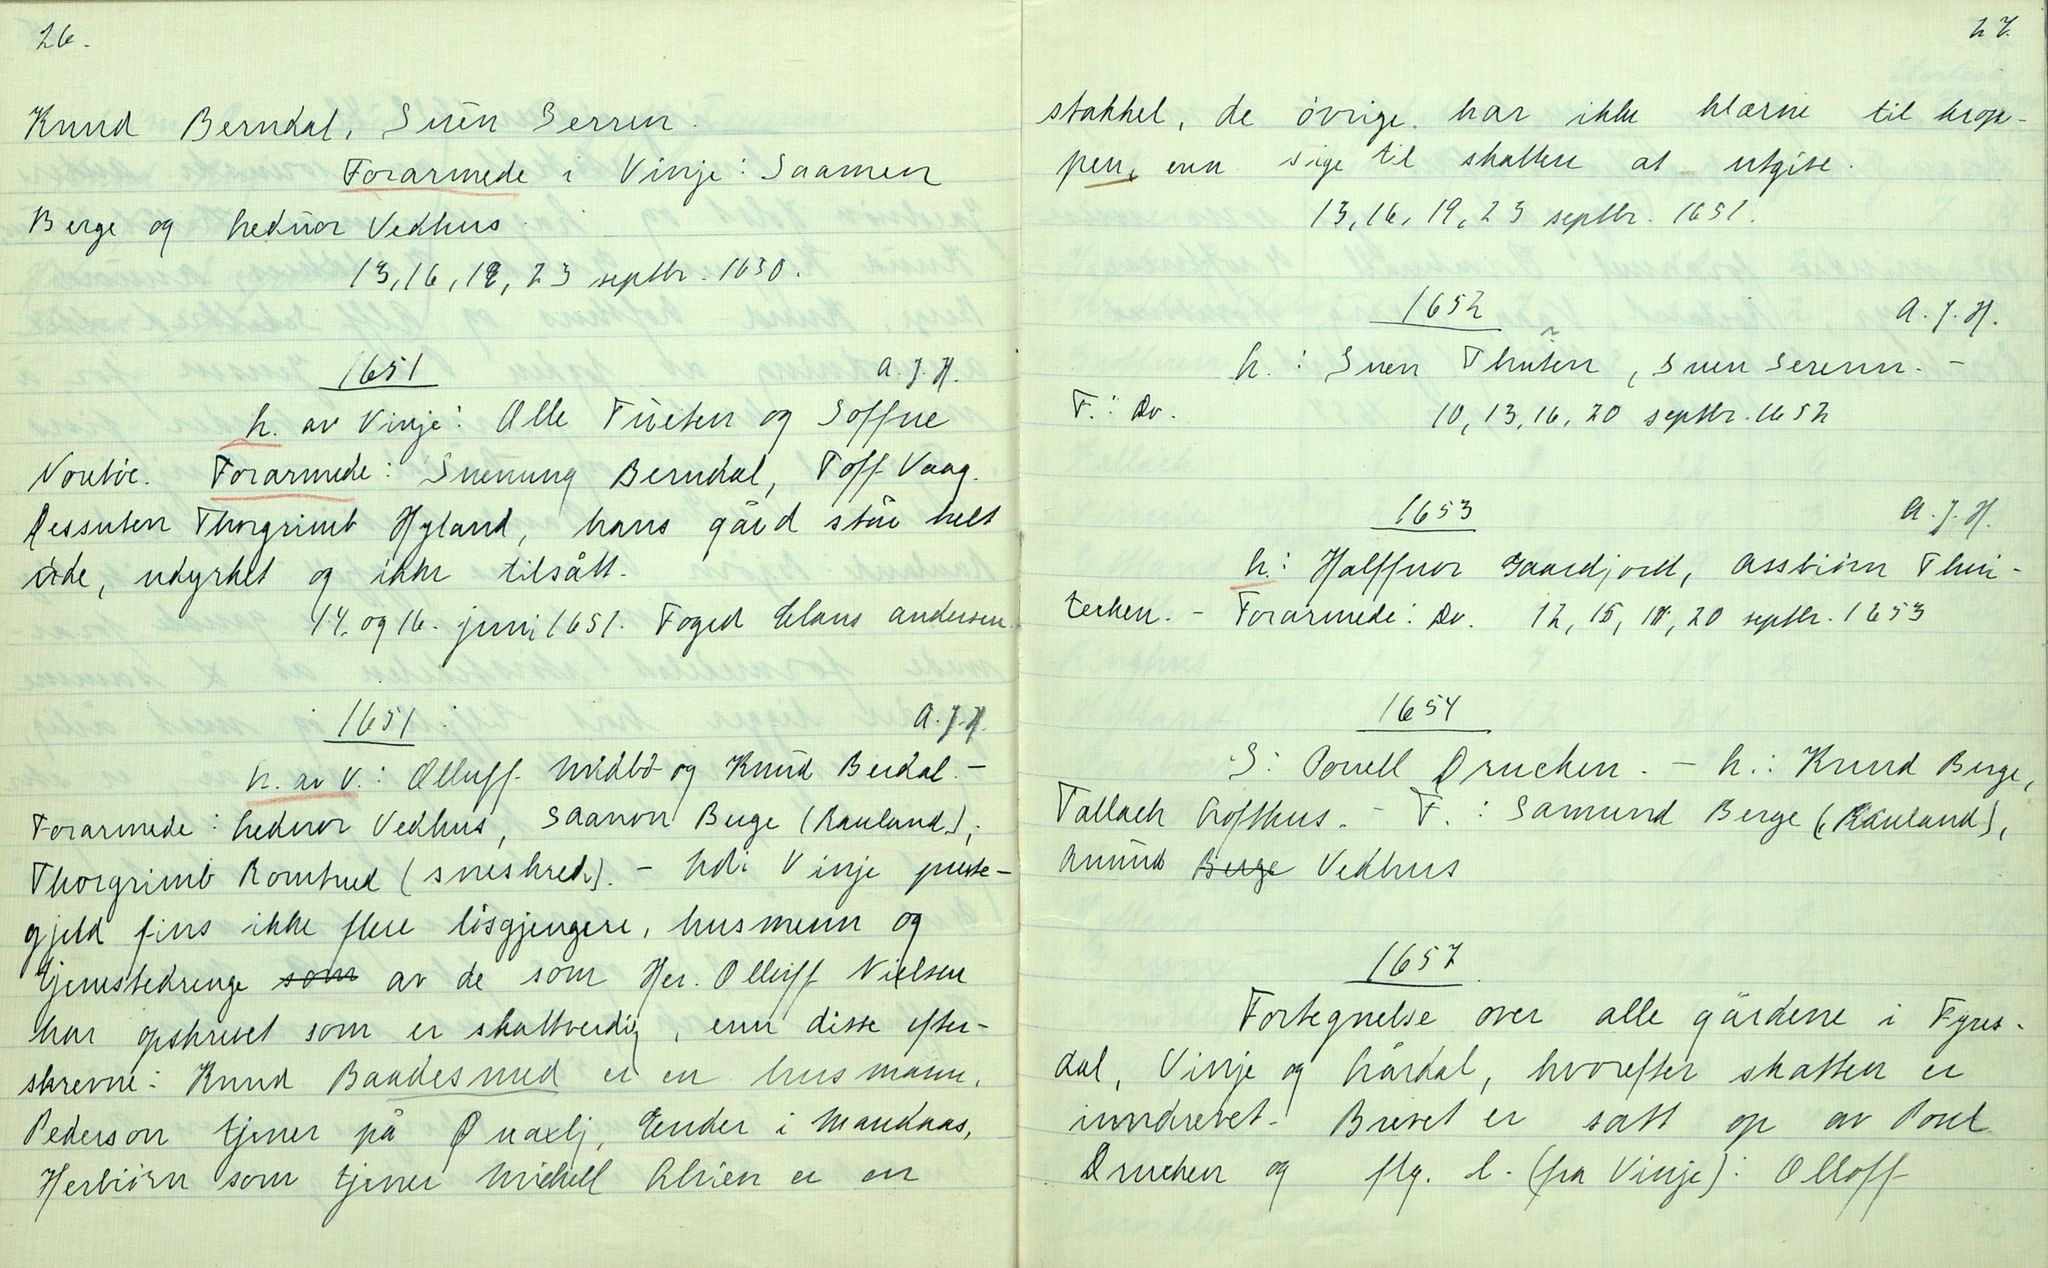 26.
Knud Berndal, Suen Serren.
Forarmede i Vinje: Saamen
Berge og Lednor Vedhus
13, 16, 19, 23 septbr. 1650.
1651 A. J. H.
L. av Vinje: Olle Tueten og Soffne
Norbøe. Forarmede: Suenung Berndal, Toff Vaag.
Dessuten Thorgrimb Hyland, hans gård står helt
øde, udyrket og ikke tilsått.
14. og 16. juni 1651. Foged Claus Andersen.
1651 A. J. H.
L. av V.: Olluff Midbö og Knud Berdal. -
Forarmede: Lednor Vedhus, Saamon Berge (Rauland),
Thorgrimb Romtned (sneskred). - Udi Vinje preste-
gjeld fins ikke flere lösgjengere, husmenn og
tjenestedrenge som av de som Her. Olluff Nielsen
har opskrevet som er skattverdig, enn disse efter-
skrevne: Knud Baadesmed er en husmann,
Pederson tjener på Quaalj, Ender i Mandaas,
Herbiørn som tjener Michell Alrien er en
27.
stakkel, de øvrige har ikke klærne til krop-
pen, enn sige til skatten at utgive.
13, 16, 19, 23 septbr. 1651.
1652 A. J. H.
L.: Suen Thuten, Suen Serenn. -
F.: Do. 10, 13, 16, 20 septbr. 1652
1653 A. J. H.
L.: Halffuor Gaardjord, Assbiørn Thui-
tecken. - Forarmede: Do. 12, 15, 18, 20 septbr. 1653
1654
S: Pouell Drucken. - L.: Knud Berge,
Tallach Loffthus. - F.: Samund Berge (Rauland),
Amund Berge Vedhus
1657.
Fortegnelse over alle gårdene i Fyres-
dal, Vinje og Lårdal, hvorefter skatten er
inndrevet. Brevet er satt op av Poul
Drucken og flg. l. (fra Vinje): Olloff